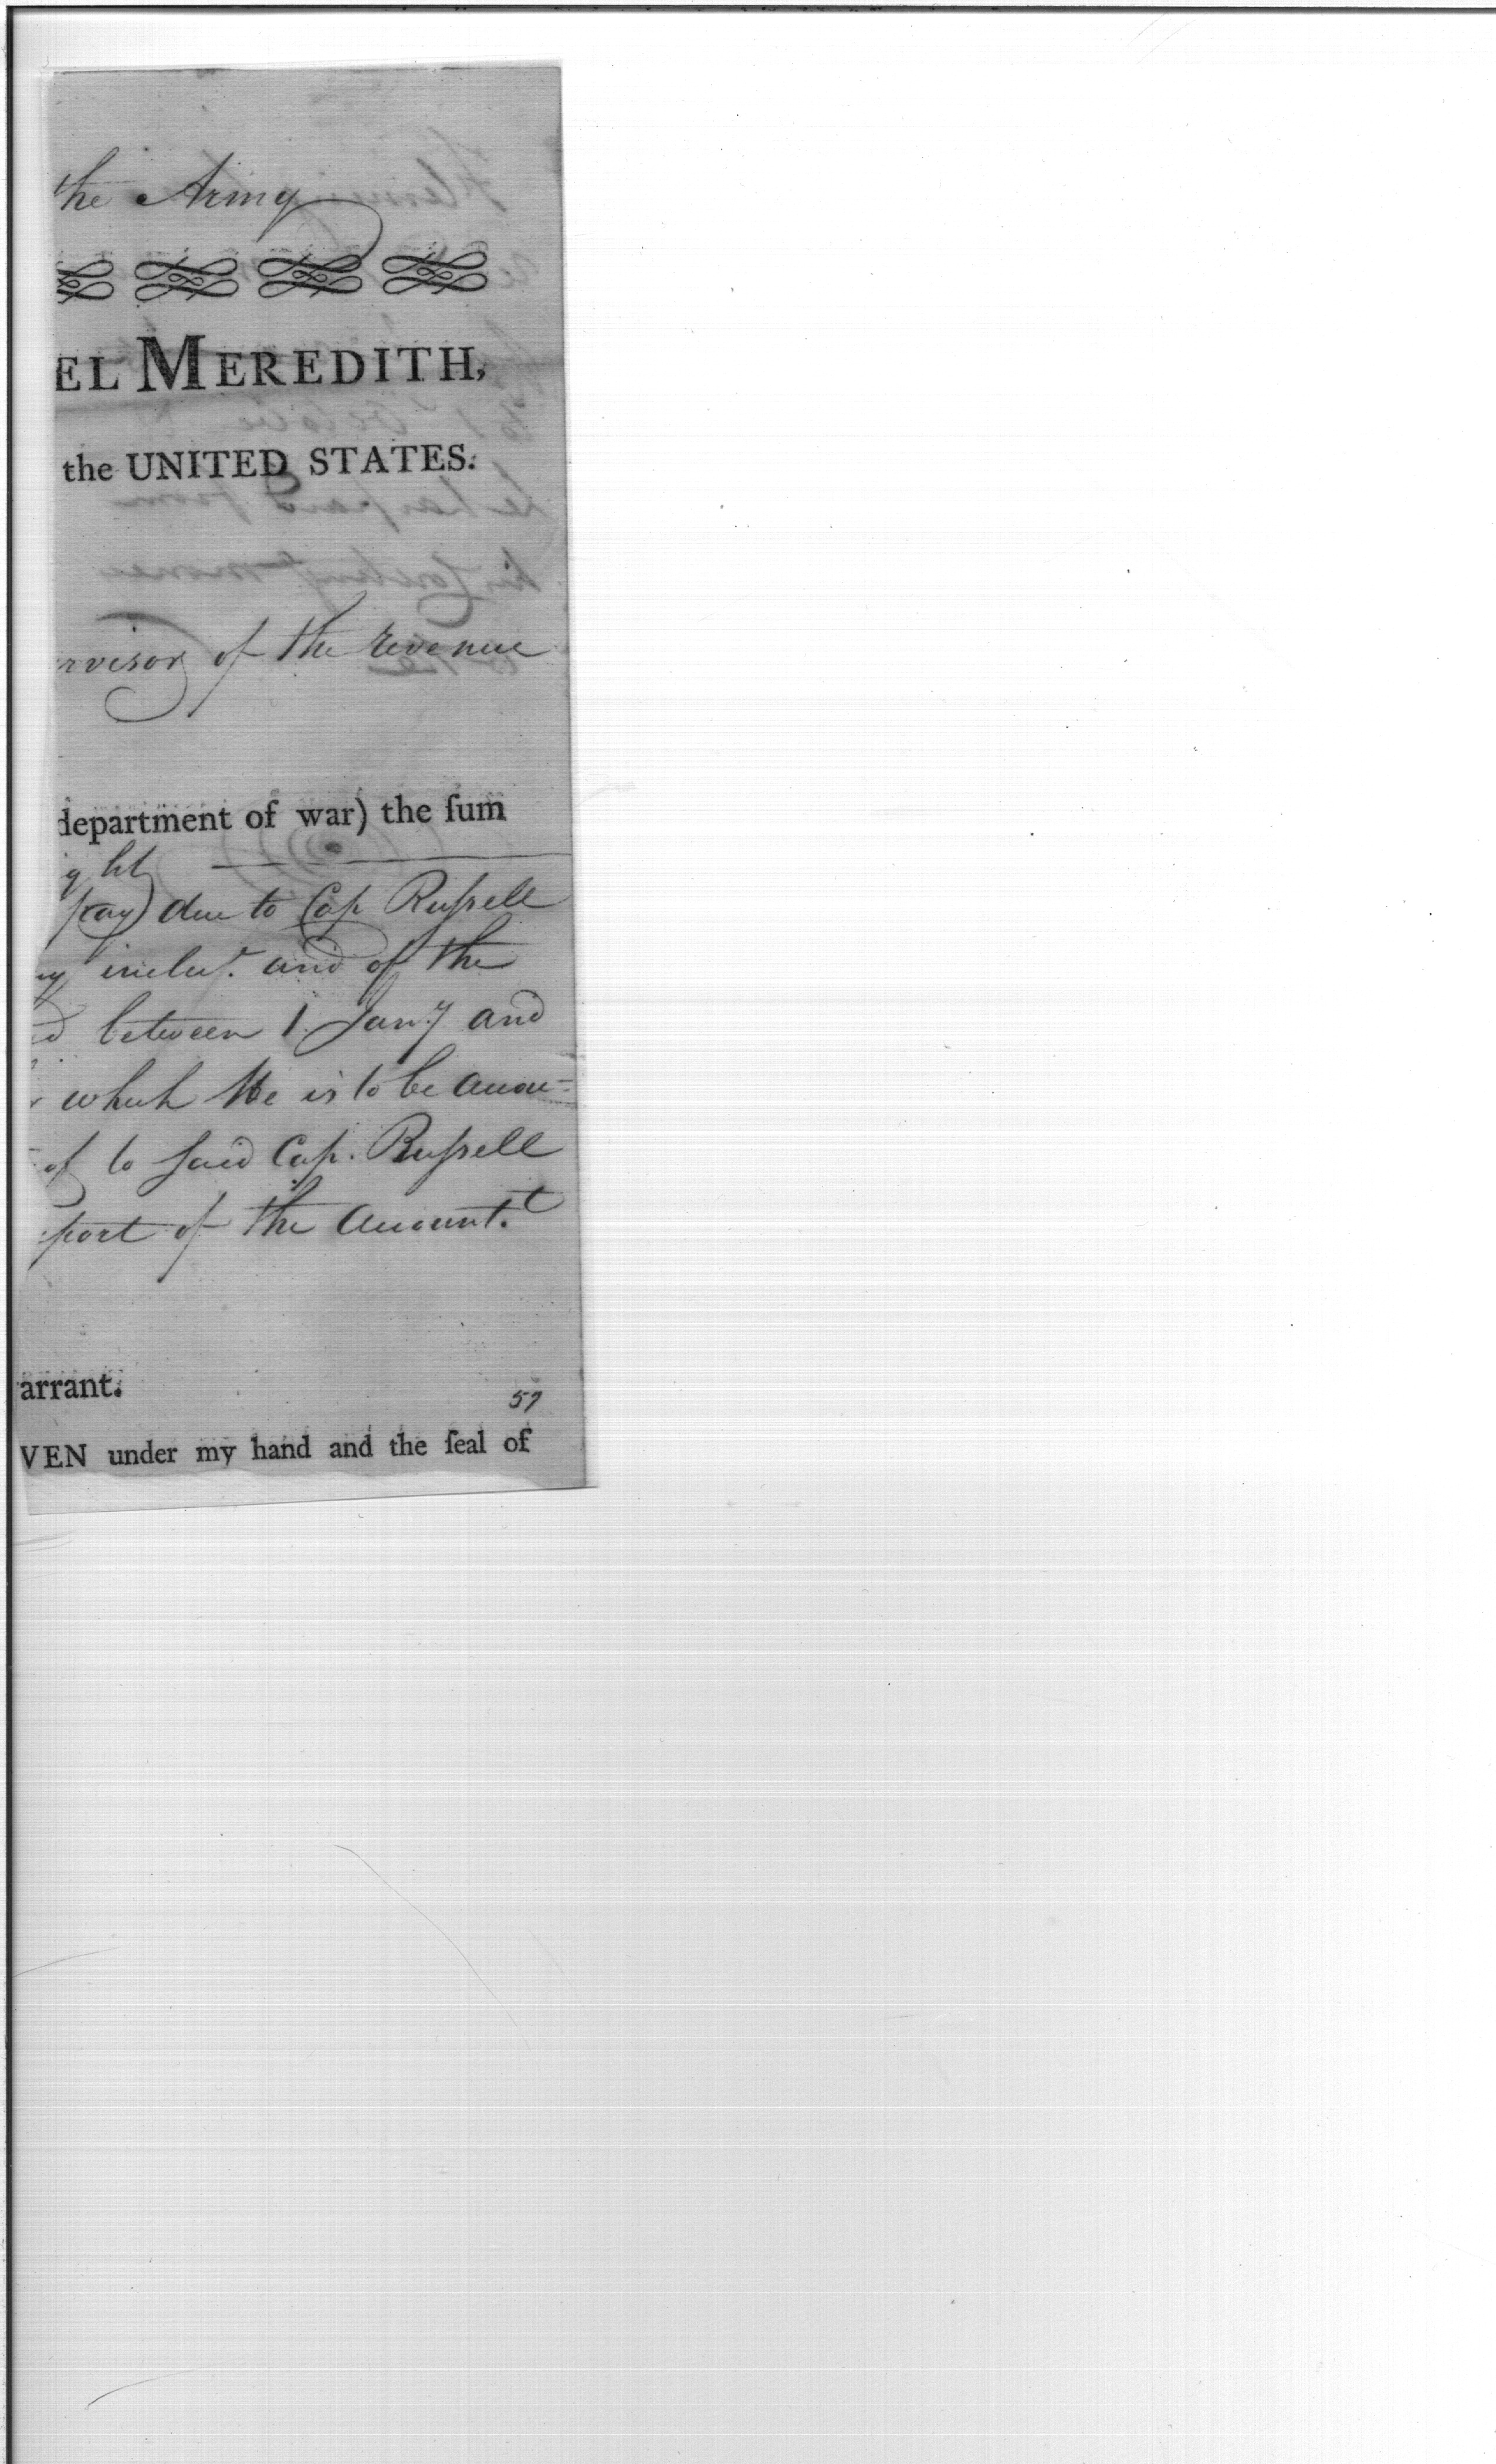 the Army
EL MEREDITH,
the UNITED STATES.
rvisor of the revenue
department of war) the ſum
ght
pay) due to Cap Ruſsell
y incluſ.ͤ and of the
d between 1. Jan.y and
which He is to be accou=
of to said Cap. Ruſsell
port of the account.t
arrant.
57
VEN under my hand and the ſeal of